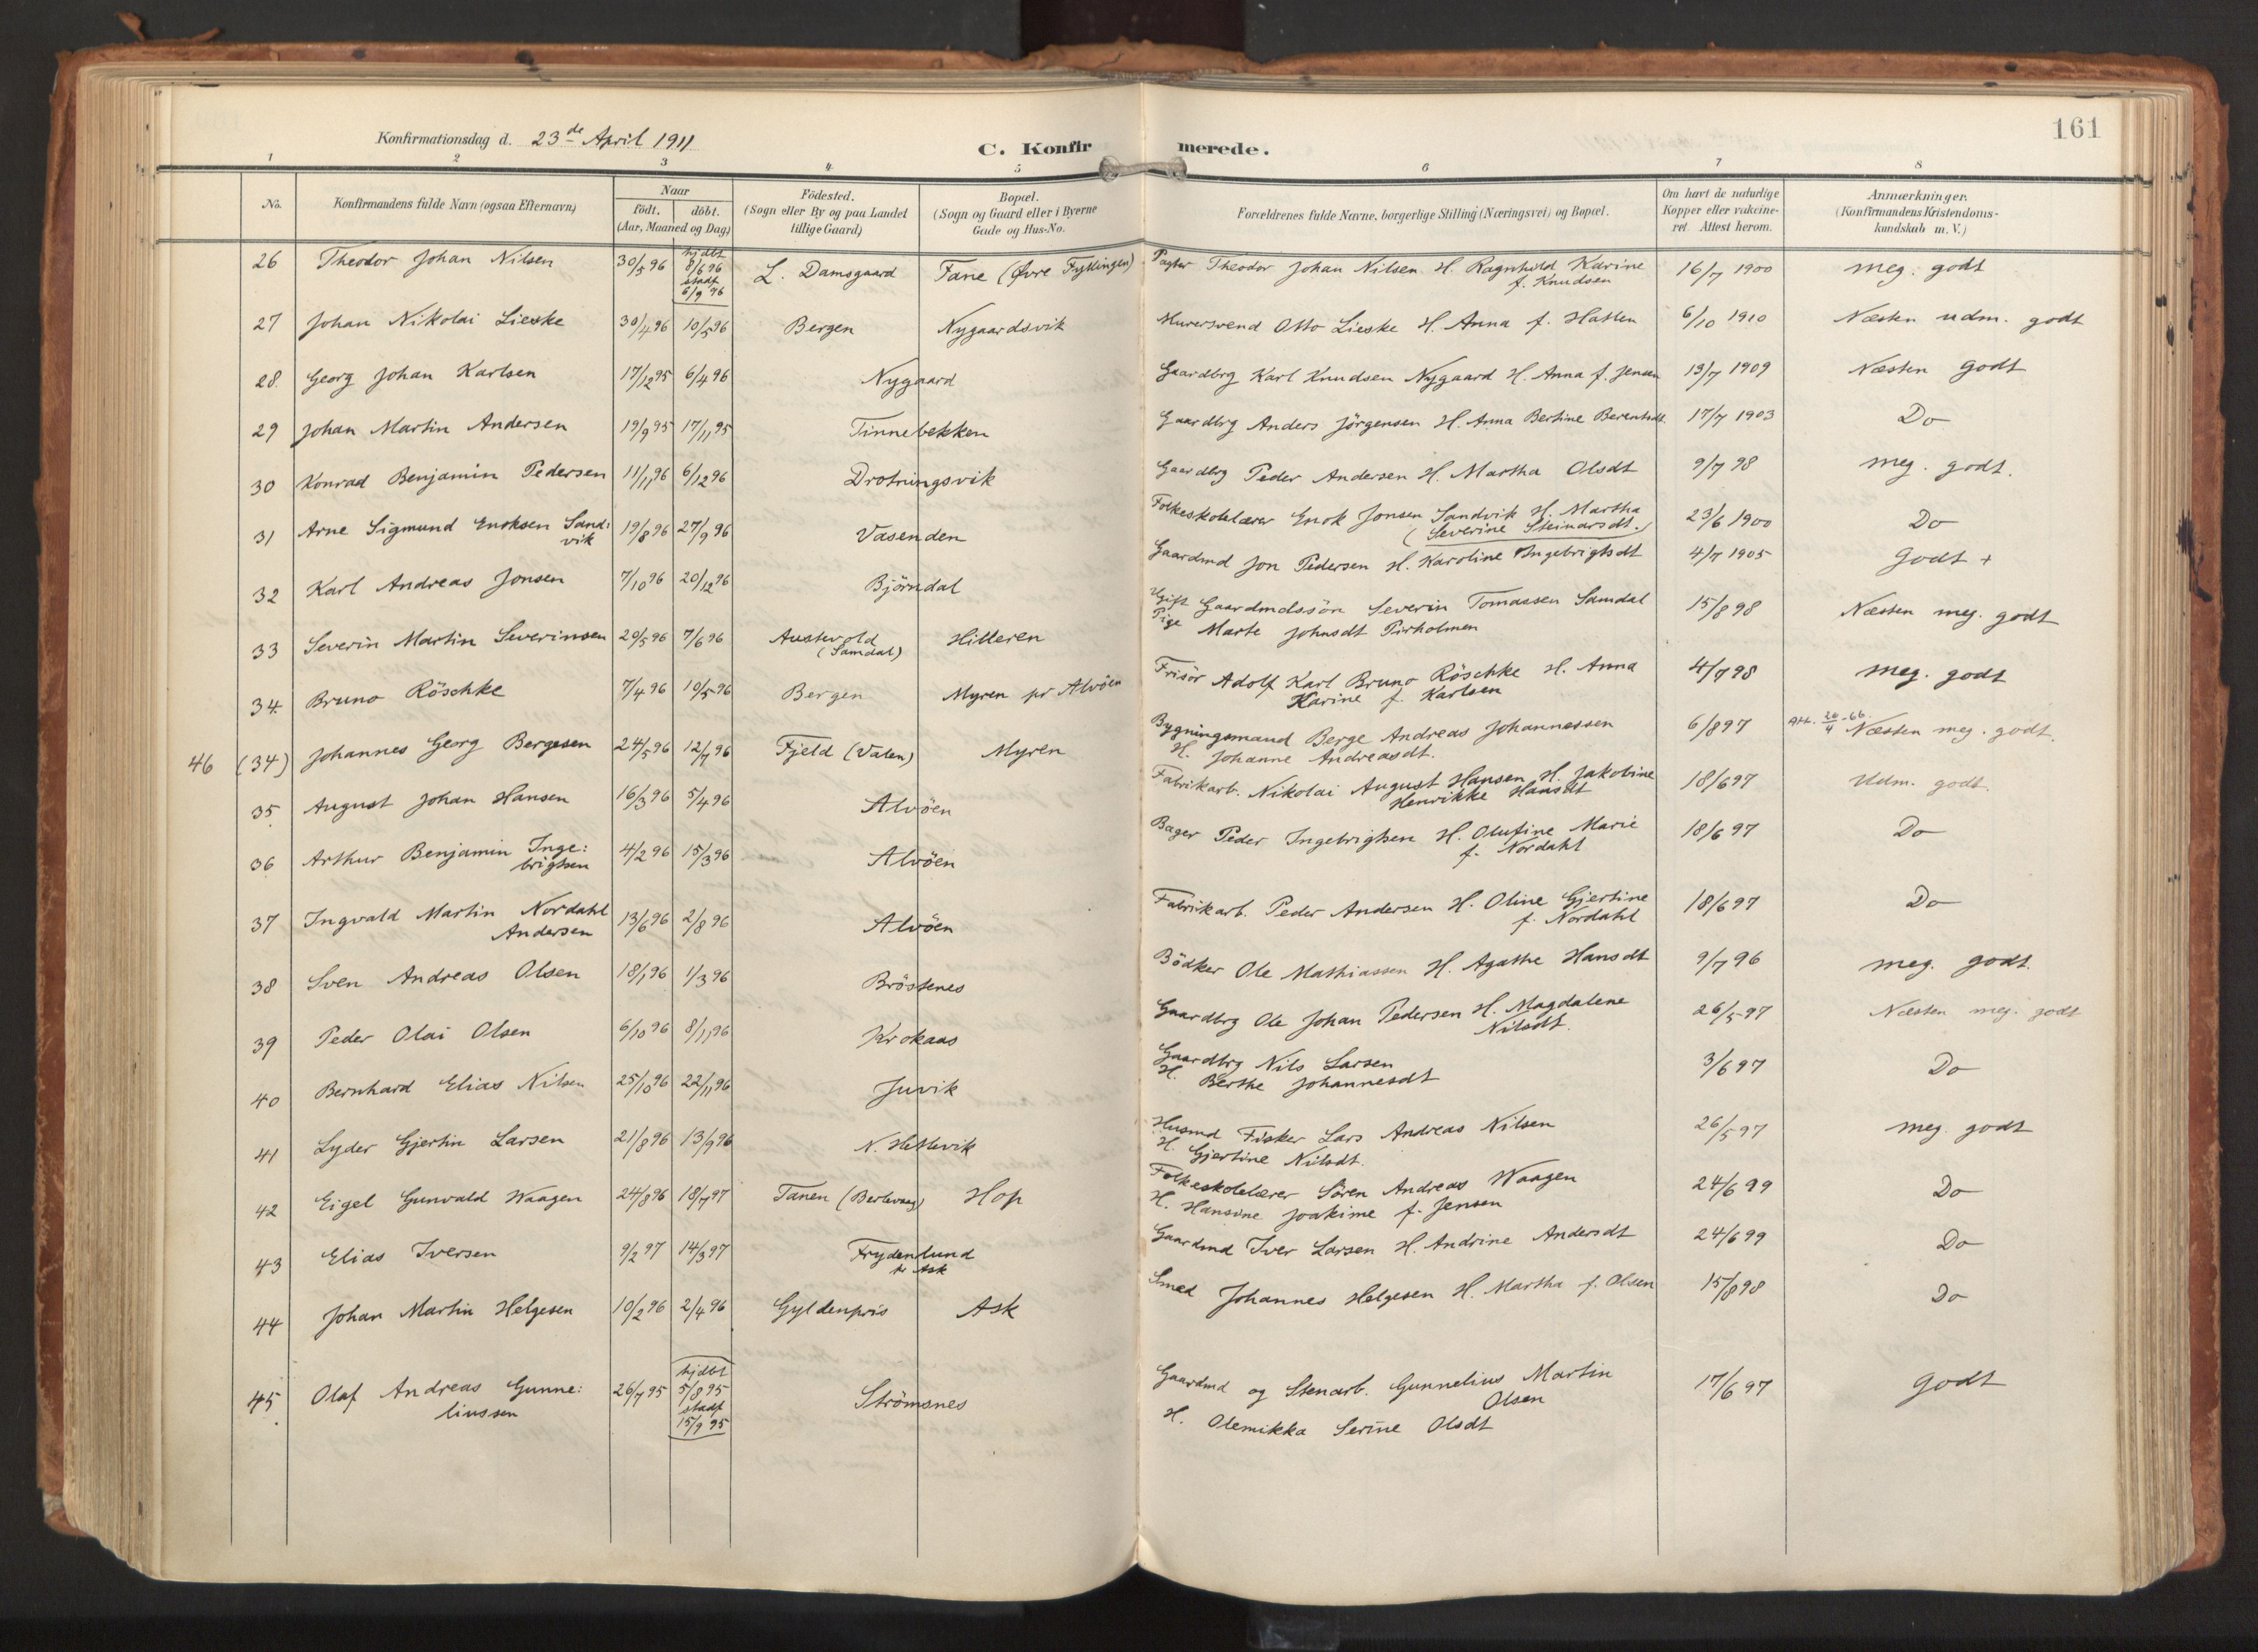 161
Konfirmationsdag d. 23de April 1911
C. Konfirmerede.
1 2 3 4 5 6 7 8
No. Konfirmandens fulde Navn (ogsaa Efternavn) Naar födt. döbt. (Aar, Maaned og Dag) Födested. (Sogn eller By og paa Landet tillige Gaard) Bopæl. (Sogn og Gaard eller i Byerne Gade og Hus-No. Forældrenes fulde Navne, borgerlige Stilling (Næringsvei) og Bopæl. Om havt de naturlige Kopper eller vakcineret. Attest herom. Anmærkninger. (Konfirmandens Kristendomskundskab m. V.)
26 Theodor Johan Nilsen 30/5 96 hjdbt 8/6 96 stadf 6/9 96 L. Damsgaard Fane (Øvre Fyllingen) Pagter Theodor Johan Nilsen H. Ragnhild Karine f. Knudsen 16/7 1900 meg. godt
27 Johan Nikolai Lieske 30/4 96 10/5 96 Bergen Nygaardsvik Murersvend Otto Lieske H. Anna f. Hatlen 6/10 1910 Næsten udm. godt
28. Georg Johan Karlsen 17/12 95 6/4 96 Nygaard Gaardbrg Karl Knudsen Nygaard H. Anna f. Jensen 13/7 1909 Næsten godt
29 Johan Martin Andersen 19/9 95 17/11 95 Tinnebekken Gaardbrg Anders Jörgensen H. Anna Bertine Berentsdt 17/7 1903 Do
30 Konrad Benjamin Pedersen 11/11 96 6/12 96 Drotningsvik Gaardbrg Peder Andersen H. Martha Olsdt 9/7 98 meg. godt.
31 Arne Sigmund Enoksen Sand: vik 19/8 96 27/9 96 Vasenden Folkeskolelærer Enok Jonsen Sandvik H. Martha (Severine Steinarsdt.) 23/6 1900 Do
32 Karl Andreas Jonsen 7/10 96 20/12 96 Björndal Gaardmd Jon Pedersen H. Karoline Ingebrigtsdt 4/7 1905 Godt +
33 Severin Martin Severinsen 20/5 96 7/6 96 Austevold (Samdal) Hilleren Ugift Gaardmdssön Severin Tomassen Samdal Pige Marte Johnsdt Pirholmen 15/8 98 Næsten meg. godt
34. Bruno Röschke 7/4 96 10/5 96 Bergen Myren pr Alvöen Frisör Adolf Karl Bruno Röschke H. Anna Karine f. Karlsen 4/7 98 meg. godt
46 (34) Johannes Georg Bergesen 24/5 96 12/7 96 Fjeld (Valen) Myren Bygningsmand Berge Andreas Johannessen H. Johanne Andreasdt. 6/8 97 Att. 26/4-66 Næsten meg. godt.
35 August Johan Hansen 16/3 96 5/4 96 Alvöen Fabrikarb. Nikolai August Hansen H. Jakobine Henrikke Hansdt 18/6 97 Udm. godt.
36 Arthur Benjamin Inge: brigtsen 4/2 96 15/3 96 Alvöen Bager Peder Ingebrigtsen H. Olufine Marie f. Nordahl 18/6 97 Do
37 Ingvald Martin Nordahl Andersen 13/6 96 2/8 96 Alvöen Fabrikarb. Peder Andersen H. Oline Gjertine f. Nordahl 18/6 97 Do
38 Sven Andreas Olsen 18/1 96 1/3 96 Bröstenes Bödker Ole Mathiassen H. Agathe Hansdt 9/7 96 meg. godt.
39 Peder Olai Olsen 6/10 96 8/11 96 Krokaas Gaardbrg Ole Johan Pedersen H. Magdalene Nilsdt. 26/5 97 Næsten meg. godt
40 Bernhard Elias Nilsen 25/10 96 22/11 96 Juvik Gaardbrg Nils Larsen H. Berthe Johannesdt 3/6 97 Do
41 Lyder Gjertin Larsen 21/8 96 13/9 96 N. Hetlevik Husmd Fisker Lars Andreas Nilsen H. Gjertine Nilsdt. 26/5 97 meg. godt
42 Eigel Gunvald Waagen 24/8 96 18/7 97 Tanen (Berlevaag) Hop Folkeskolelærer Sören Andreas Waagen H. Hansine Joakime f. Jensen 24/6 99 Do
43 Elias Iversen 9/2 97 14/3 97 Frydenlund pr Ask Gaardmd Iver Larsen H. Andrine Andersdt 24/6 99 Do
44 Johan Martin Helgesen 10/2 96 2/4 96 Gyldenpris Ask Smed Johannes Helgesen H. Martha f. Olsen 15/8 98 Do
45. Olaf Andreas Gunne: liussen 26/7 95 hjdbt 5/8 95 stadf 15/9 95 Strömsnes Gaardmd og Stenarb. Gunnelius Martin Olsen H. Olemikka Serine Olsdt 17/6 97 Godt